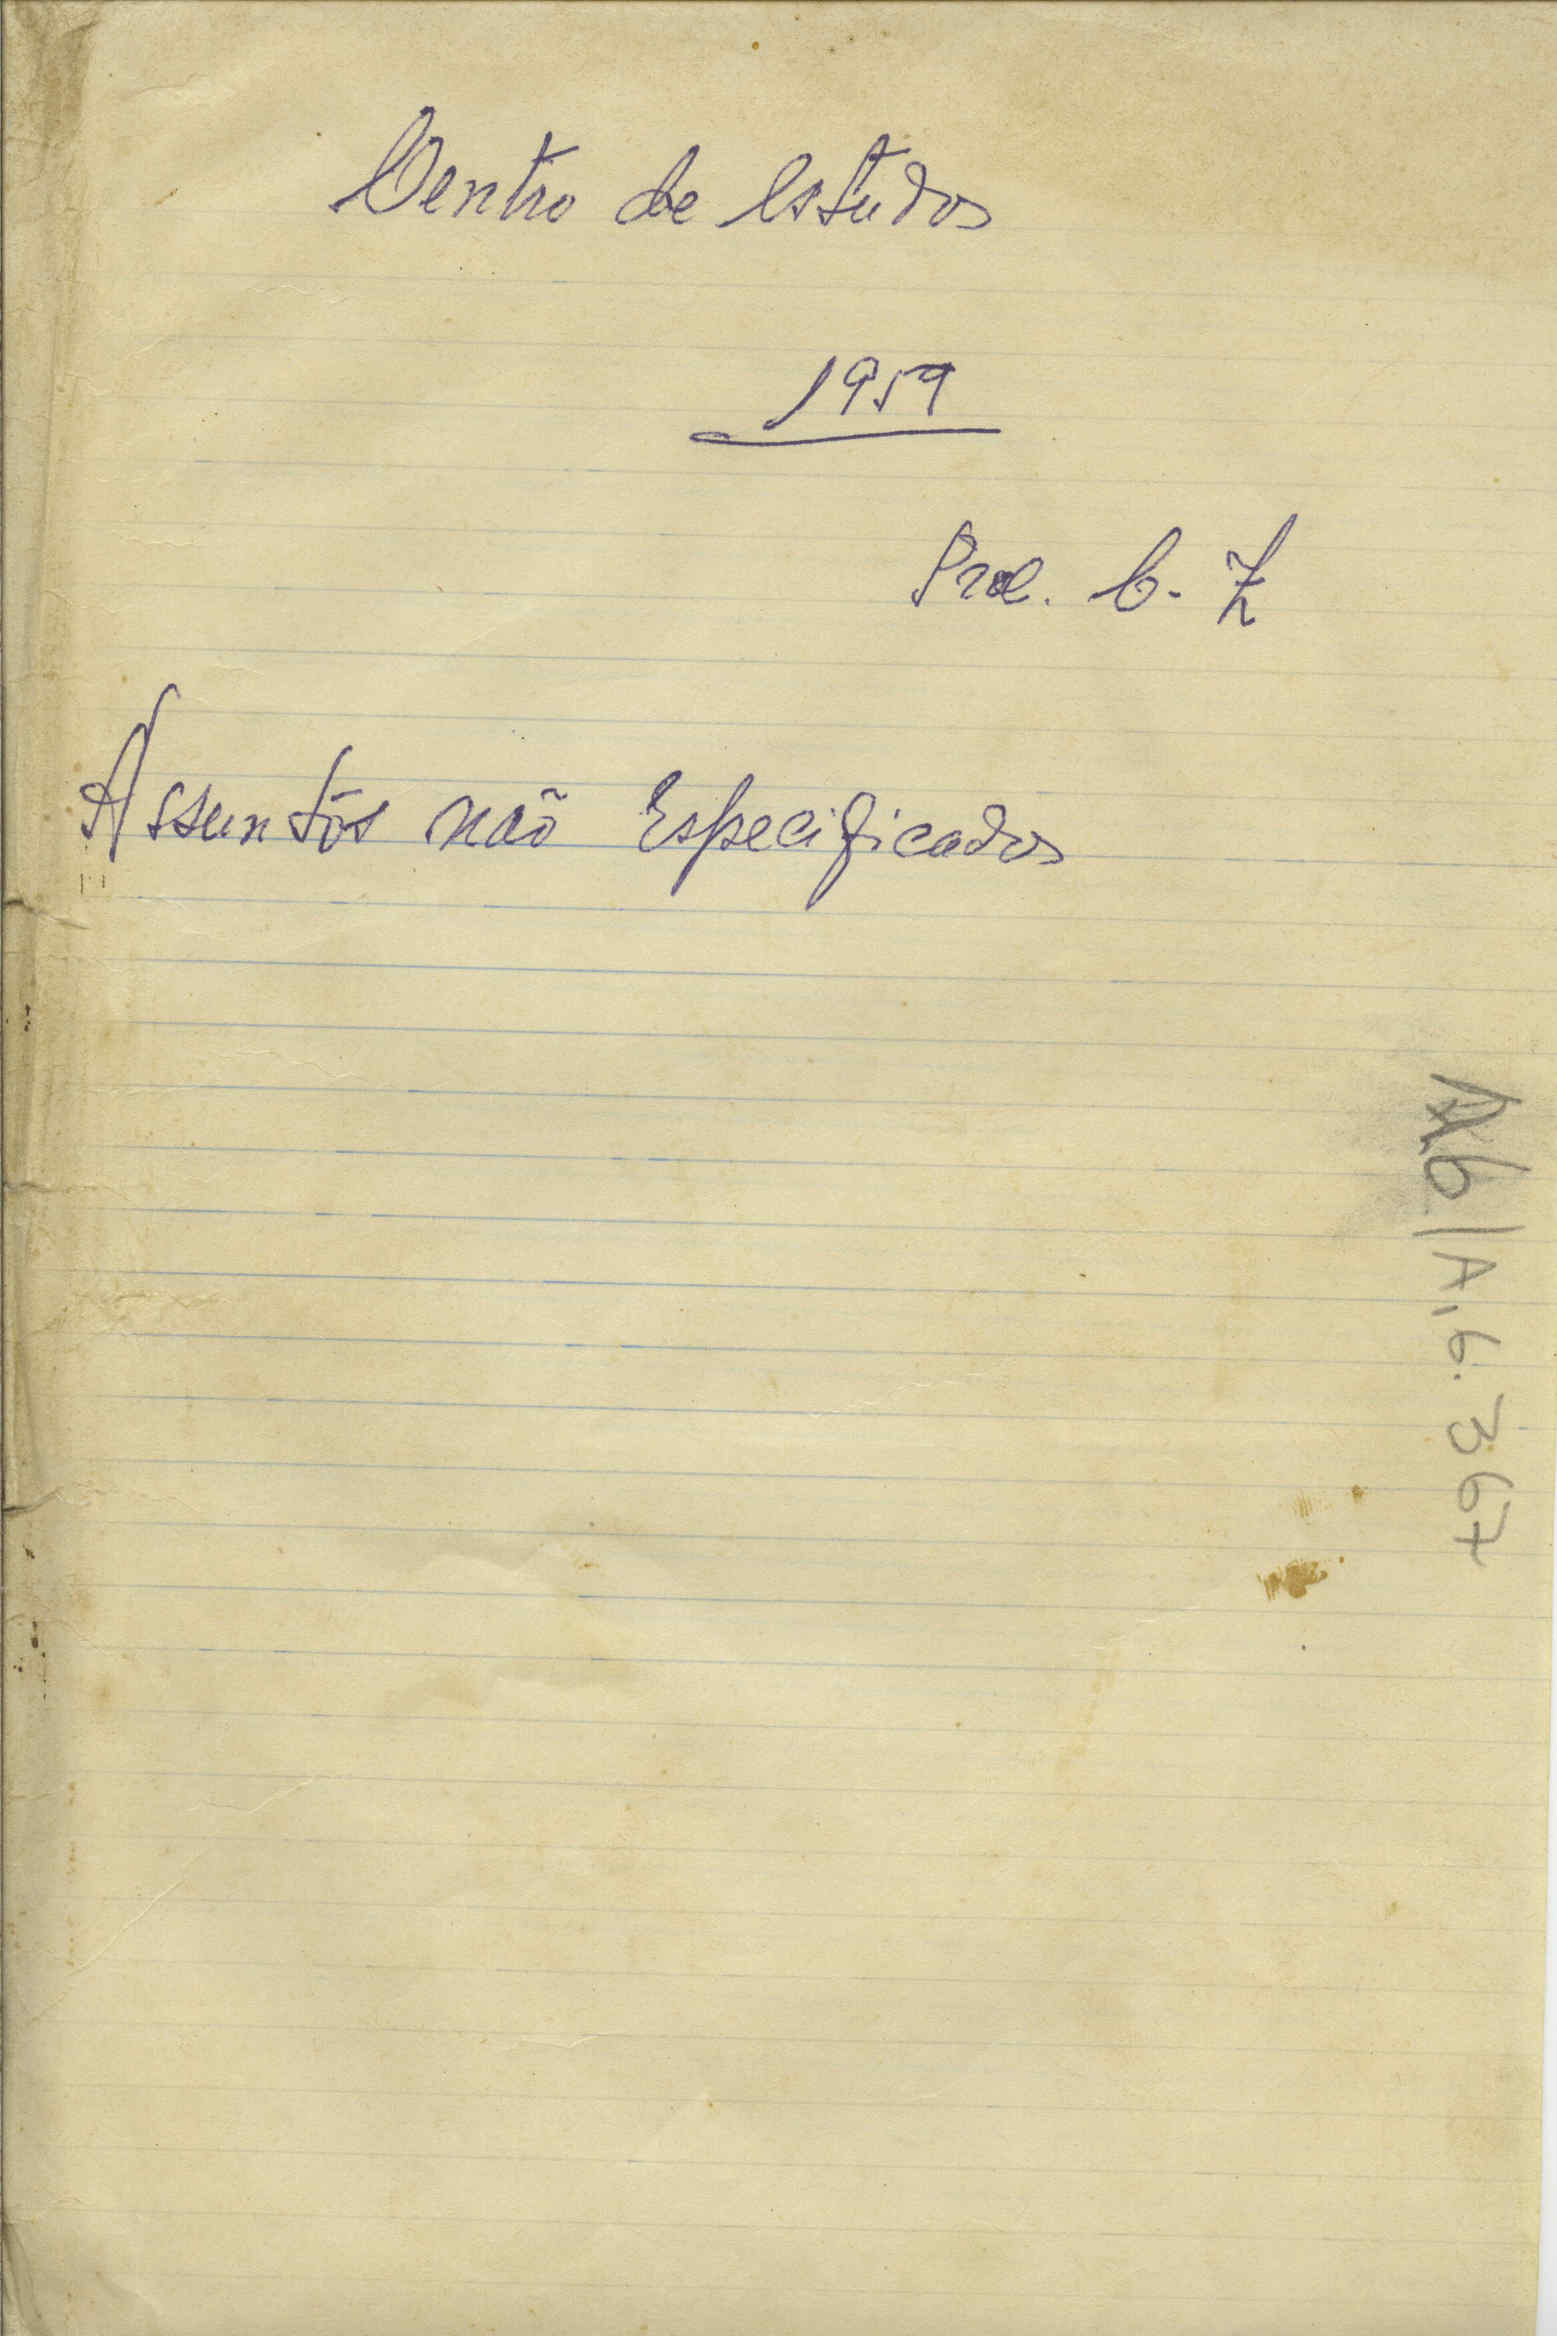 Centro de estudos
1959
Assuntos não Especificados
A, 6. 367